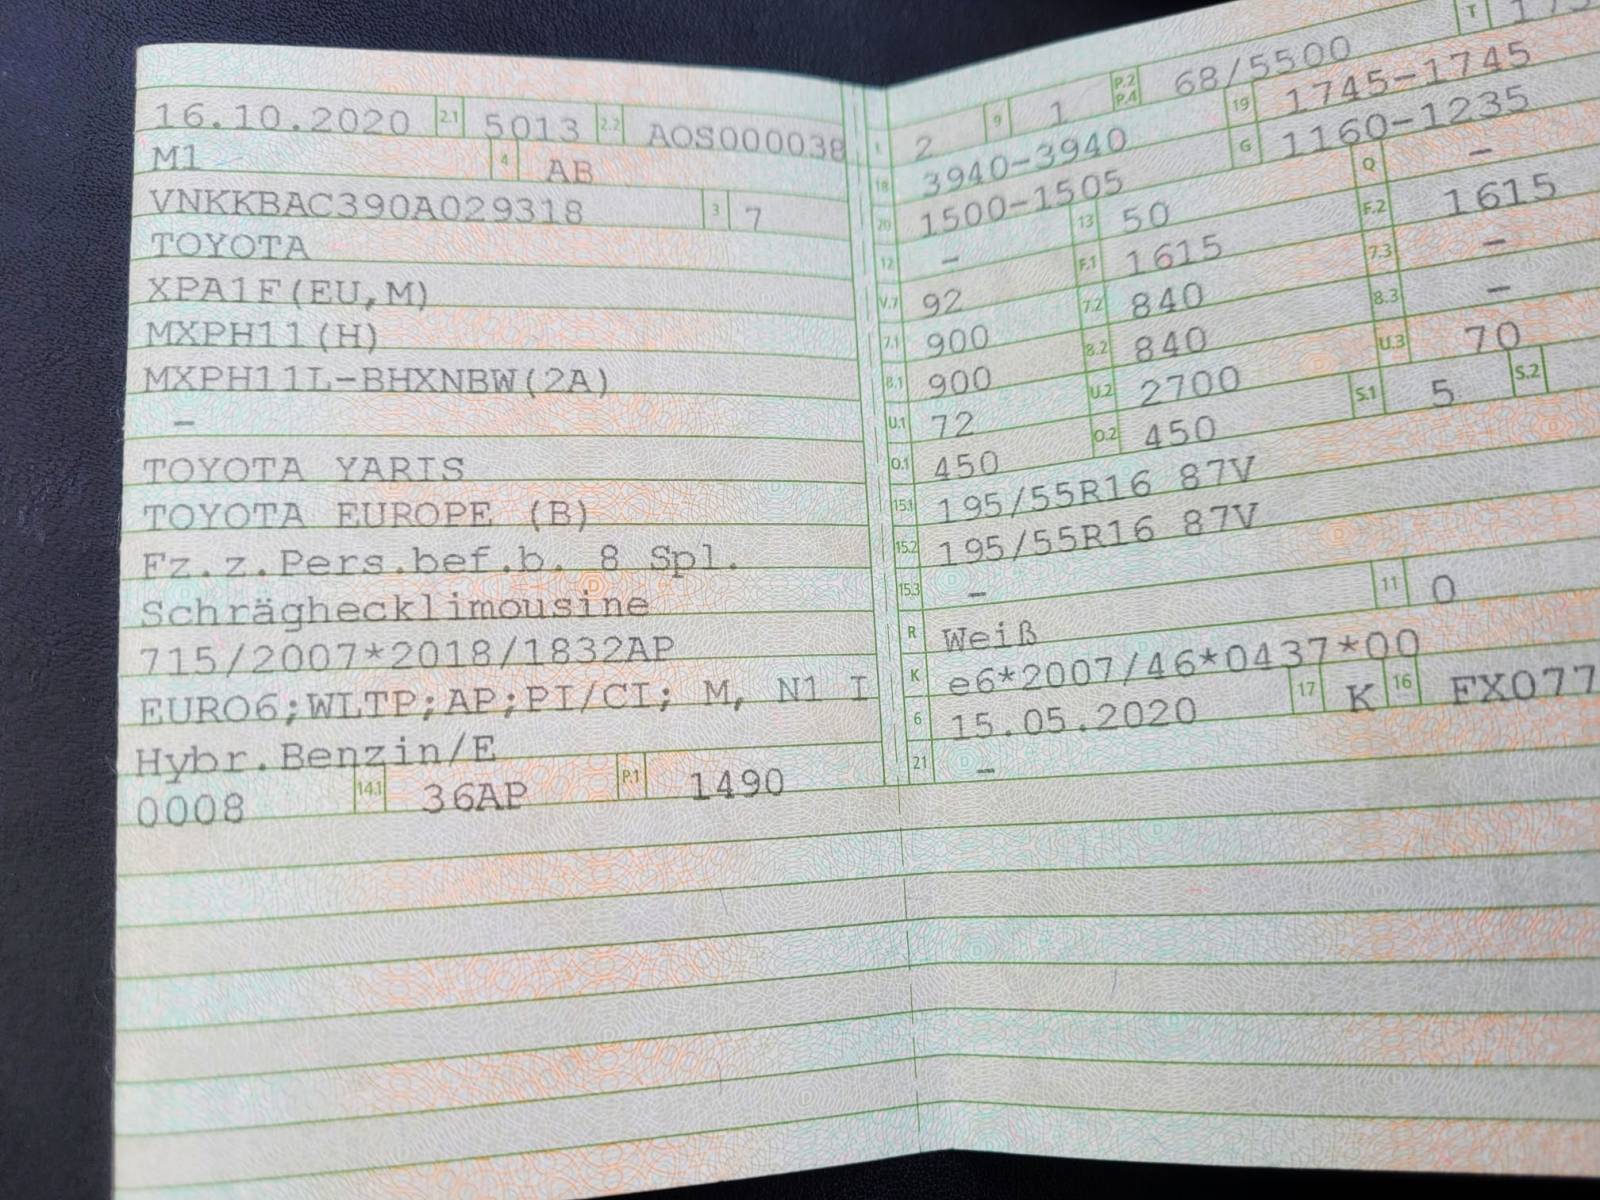 16.10.2020 2.1 5013 2.2 AOS000038
M1 4 AB
VNKKBAC390A029318 3 7
TOYOTA
XPA1F(EU,M)
MXPH11(H)
MXPH11L-BHXNBW(2A)
-
TOYOTA YARIS
TOYOTA EUROPE (B)
Fz.z.Pers.bef.b. 8 Spl.
Schräghecklimousine
715/2007*2018/1832AP
EURO6;WLTP;AP;PI/CI; M, N1 I
Hybr.Benzin/E
0008 14.1 36AP P.1 1490
L 2 9 1 P.2 P.4 68/5500 T
18 3940-3940 19 1745-1745
20 1500-1505 G 1160-1235
12 - 13 50 Q -
V.7 92 F.1 1615 F.2 1615
7.1 900 7.2 840 7.3 -
8.1 900 8.2 840 8.3 -
U.1 72 U.2 2700 U.3 70
O.1 450 O.2 450 S.1 5 S.2
15.1 195/55R16 87V
15.2 195/55R16 87V
15.3 -
R Weiß 11 0
K e6*2007/46*0437*00
6 15.05.2020 17 K 16 FX077
21 -